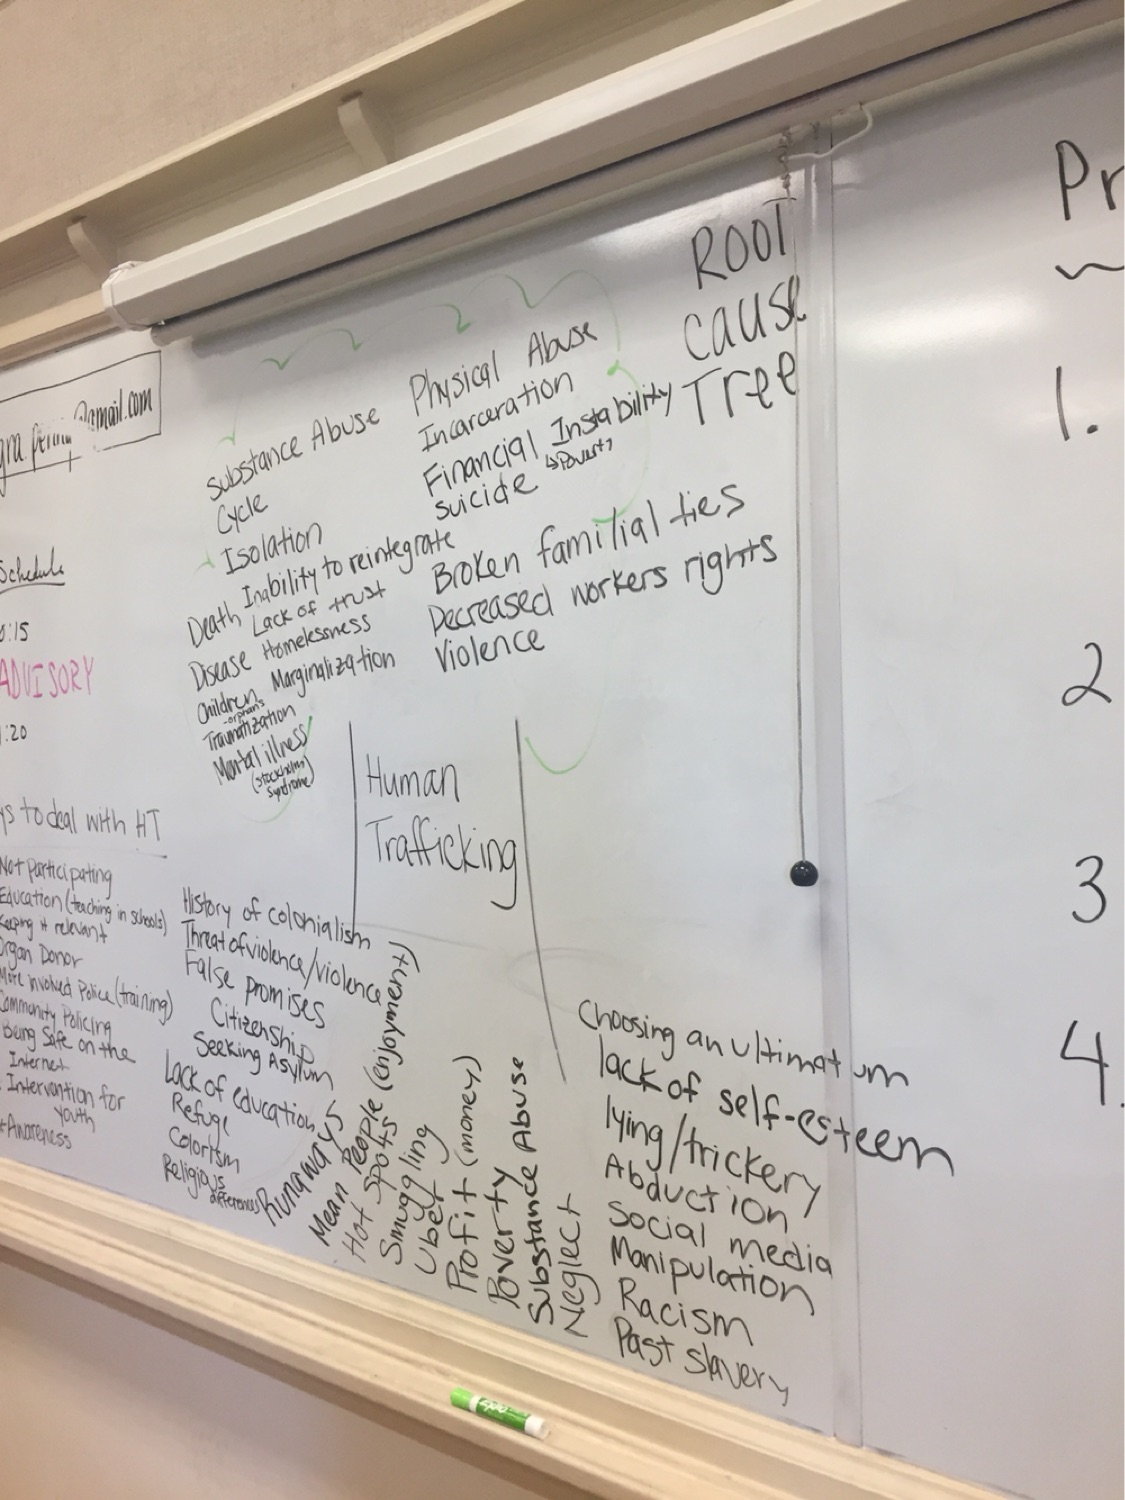 @gmail.com
Schedule
:15
ADVISORY
:20
ROOT
cause
Tree
Physical Abuse
Incarceration
Financial Instability
↳Poverty
suicide
Broken familial ties
Decreased workers rights
Violence
Substance Abuse
Cycle
Isolation
Inability to reintegrate
Death Lack of trust
Disease Homelessness
Children Marginalization
-orphans
Traumatization
Mental illness
(stockholm
syndrome)
Human
Trafficking
to deal with HT
Not participating
Education (teaching in schools)
Keeping it relevant
Organ Donor
More involved Police (training)
Community Policing
Being Safe on the
Internet
Intervention for
youth
Awareness
History of colonialism
Threat of violence/violence
False promises
Citizenship
Seeking Asylum
Lack of education
Refuge
Colorism
Religious
differences
Runaways
Mean People (enjoyment)
Hot Spots
Smuggling
Uber
Profit (money)
Poverty
Substance Abuse
Neglect
Choosing an ultimatum
lack of self-esteem
lying/trickery
Abduction
Social media
Manipulation
Racism
Past slavery
Pr
1.
2
3
4.
EXPO